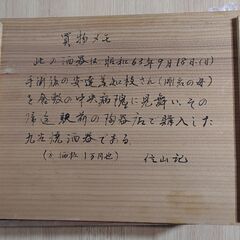 買物メモ
此の酒器は昭和63年9月18日(日)
手術後の安達美知枝さん(剛志の母)
を倉敷の中央病院に見舞い、その
帰途駅前の陶器店で購入した
九谷焼酒器である
(価格1万円也) 住山記